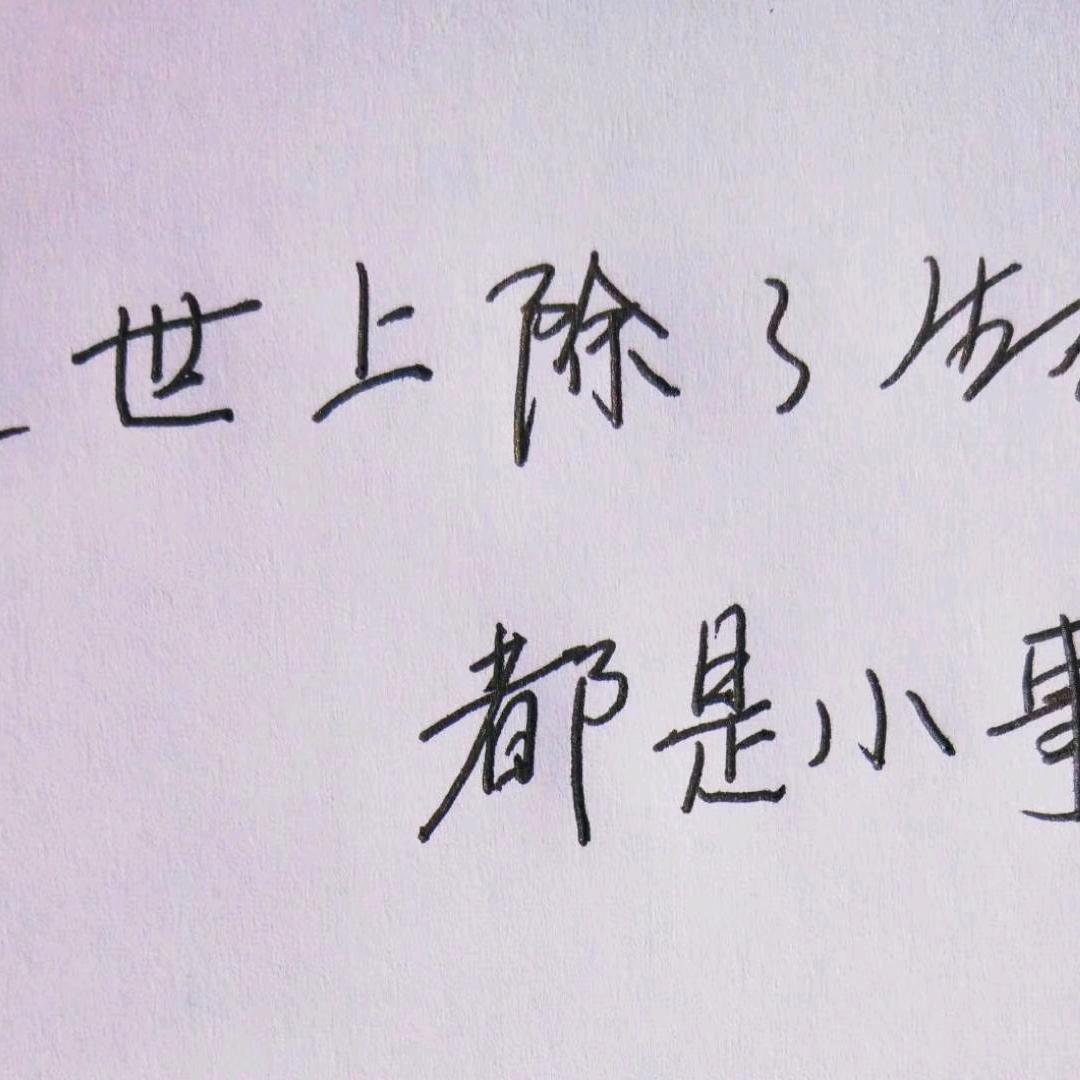 世上除了
都是小事